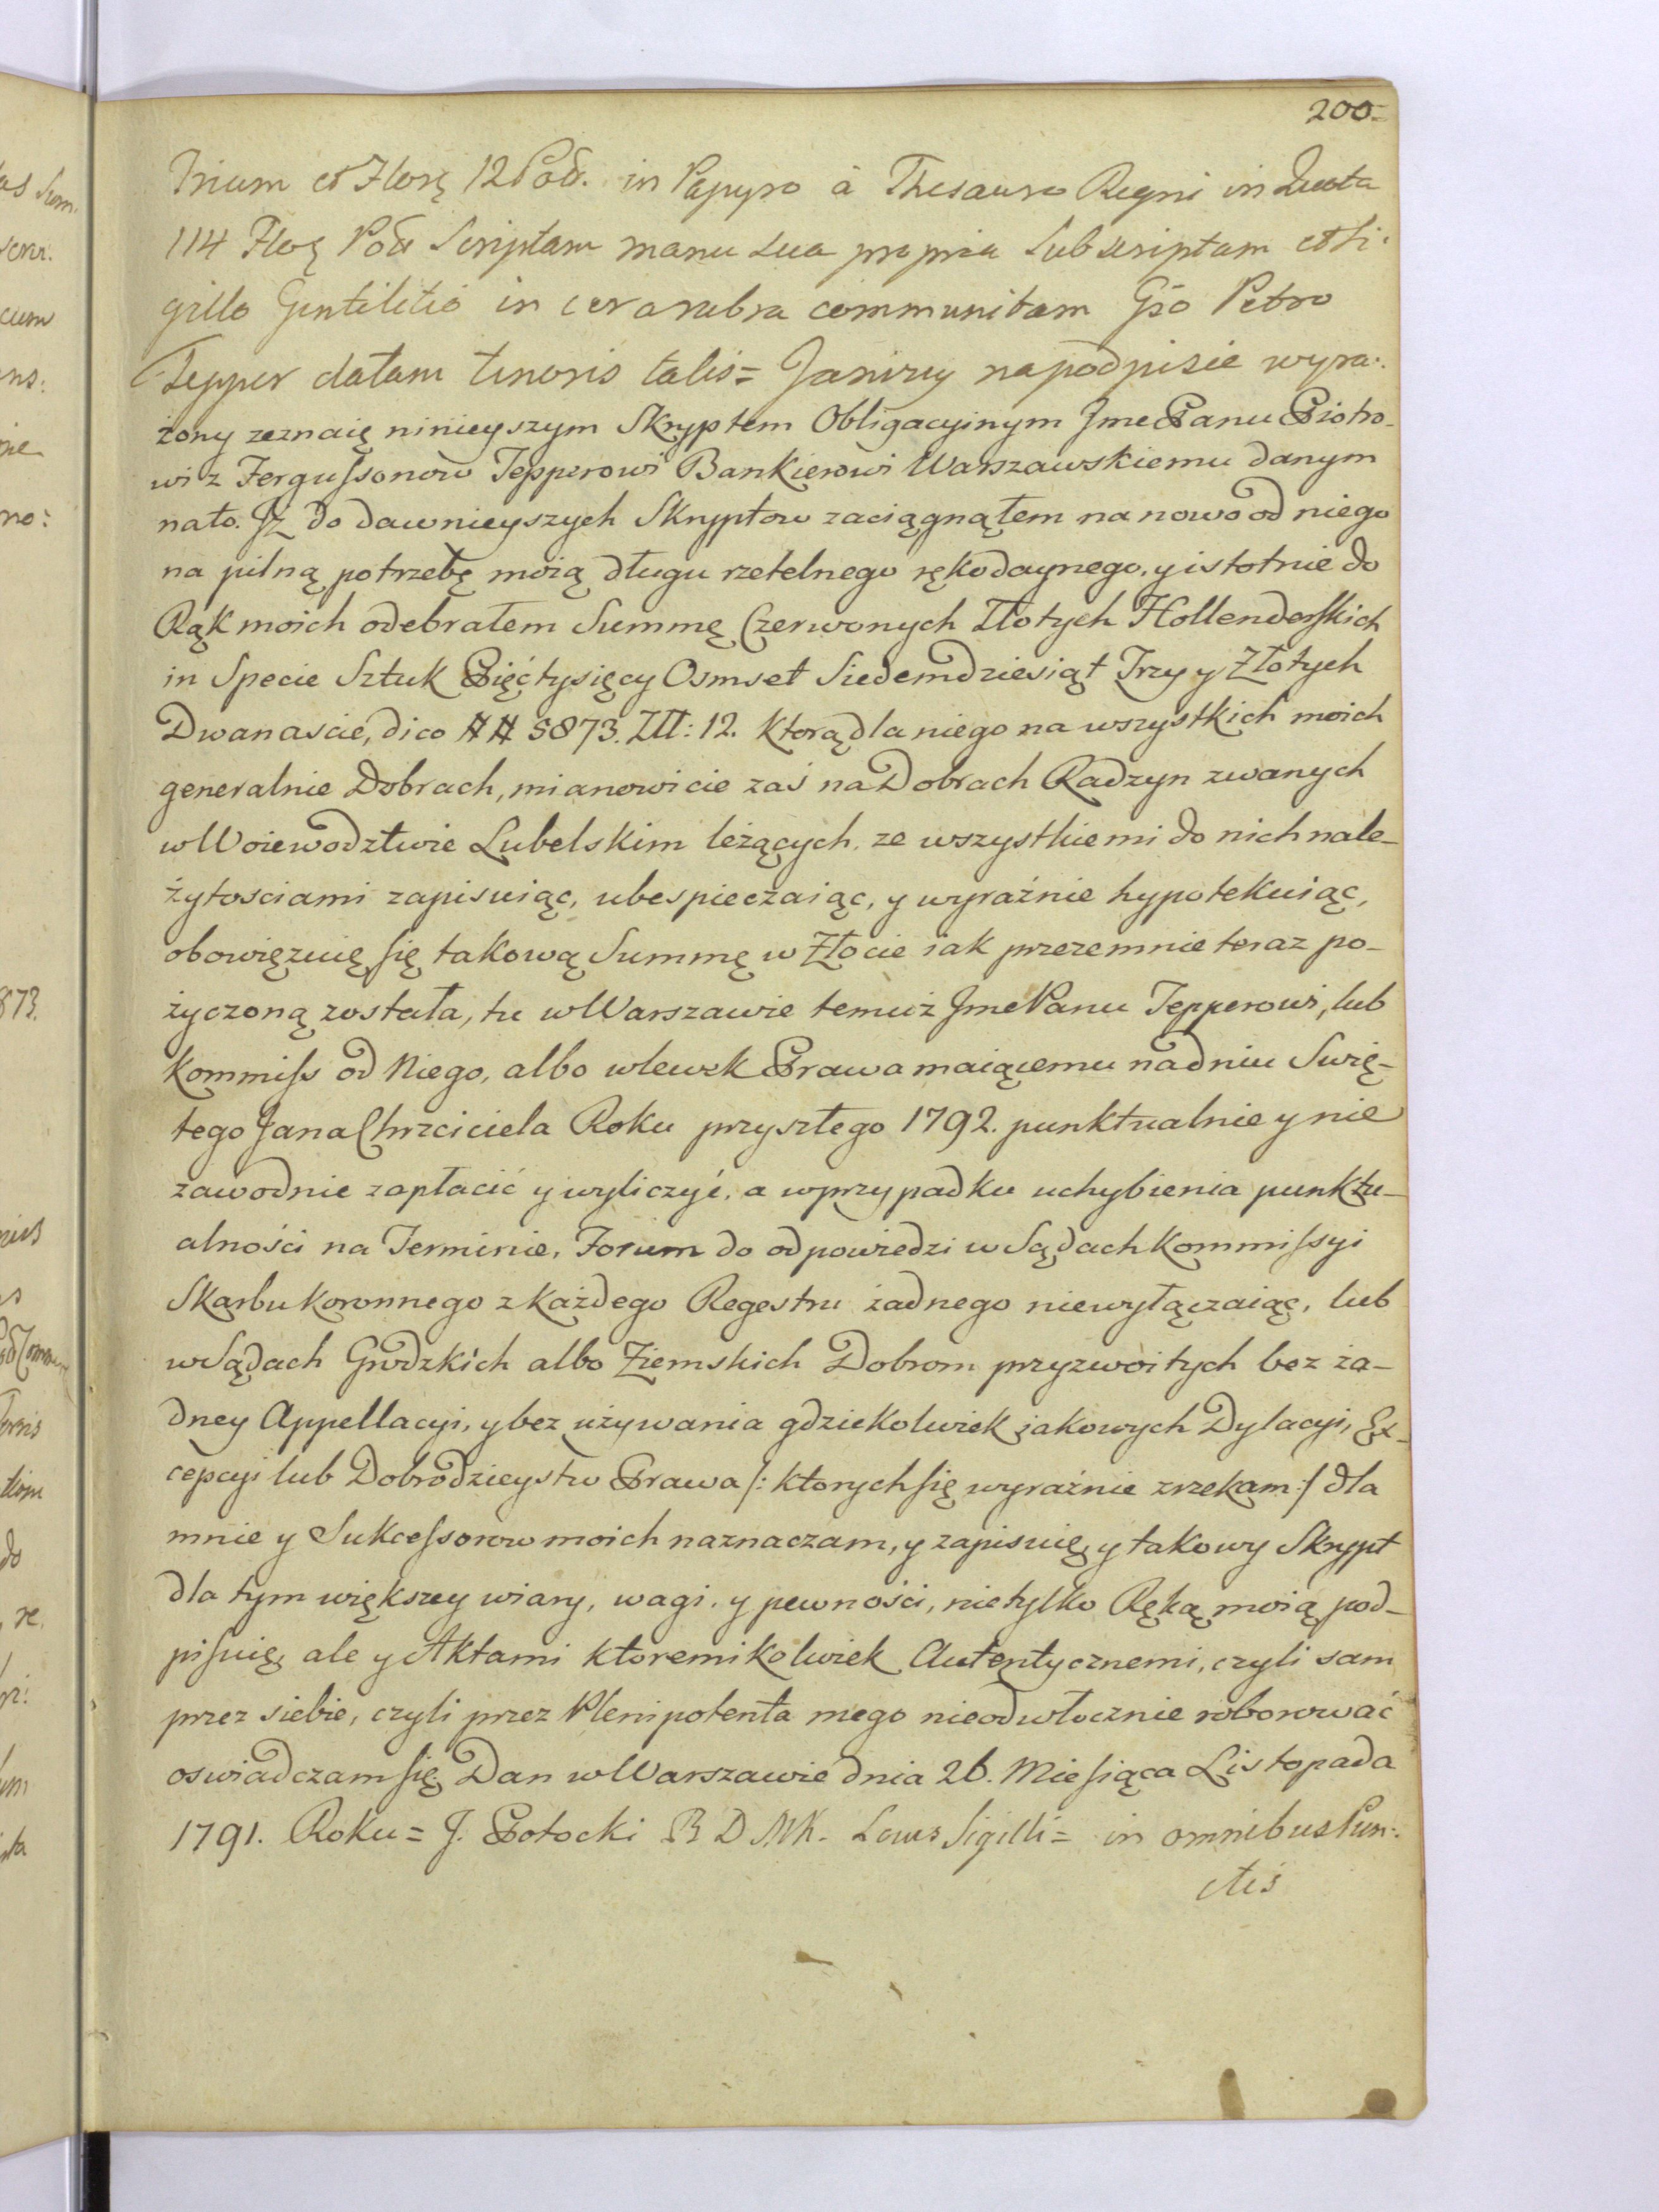 200
Trium et Flor 12 Pol. in Papyro à Thesauro Regni in Quota
114 Flor Pol Scriptam manu sua propria Subscriptam et Si:
gillo Gentilitio in cera rubra communitam Gso Petro
Tepper datam tenoris talis = Ja niżey na podpisie wyra:
żony zeznaię ninieyszym Skryptem Obligacyinym Jme Panu Piotro-
wi z Fergussonow Tepperowi Bankierowi Warszawskiemu danym
na to. Jż do dawnieyszych Skryptow zaciągnąłem na nowo od niego
na pilną potrzebę moią długu rzetelnego rękodaynego, y istotnie do
Rąk moich odebrałem Summę Czerwonych Złotych Hollenderskich
in Specie Sztuk Pięć tysięcy Osmset Siedemdziesiąt Trzy y Złotych
Dwanascie, dico ## 5873. Złł: 12. Ktorą dla niego na wszystkich moich
generalnie Dobrach, mianowicie zaś na Dobrach Radzyn zwanych
w Woiewodztwie Lubelskim leżących, ze wszystkiemi do nich nale-
żytosciami zapisuiąc, ubespieczaiąc, y wyraźnie hypotekuiąc,
obowięzuię się takową Summę w Złocie iak przezemnie teraz po-
życzoną została, tu w Warszawie temuż Jme Panu Tepperowi, lub
Kommiss od Niego, albo wlewek Prawa maiącemu na dniu Swię-
tego Jana Chrzciciela Roku przyszłego 1792. punktualnie y nie
zawodnie zapłacić y wyliczyć, a w przypadku uchybienia punktu-
alności na Terminie, Forum do odpowiedzi w Sądach Kommissyi
Skarbu Koronnego z każdego Regestru żadnego niewyłączaiąc, lub
w Sądach Grodzkich albo Ziemskich Dobrom przyzwoitych bez ża-
dney Appellacyi, y bez używania gdziekolwiek jakowych Dylacyi, Ex-
cepcyi lub Dobrodzieystw Prawa /: ktorych się wyraźnie zrzekam :/ dla
mnie y Sukcessorow moich naznaczam, y zapisuię, y takowy Skrypt
dla tym większey wiary, wagi, y pewności, nie tylko Ręką moią pod-
pisuię, ale y Aktami ktoremikolwiek Autentycznemi, czyli sam
przez siebie, czyli przez Plenipotenta mego nieodwłocznie roborować
oswiadczam się, Dan w Warszawie dnia 26. Miesiąca Listopada
1791. Roku = J. Potocki Locus Sigilli = in omnibus Pun:
ctis